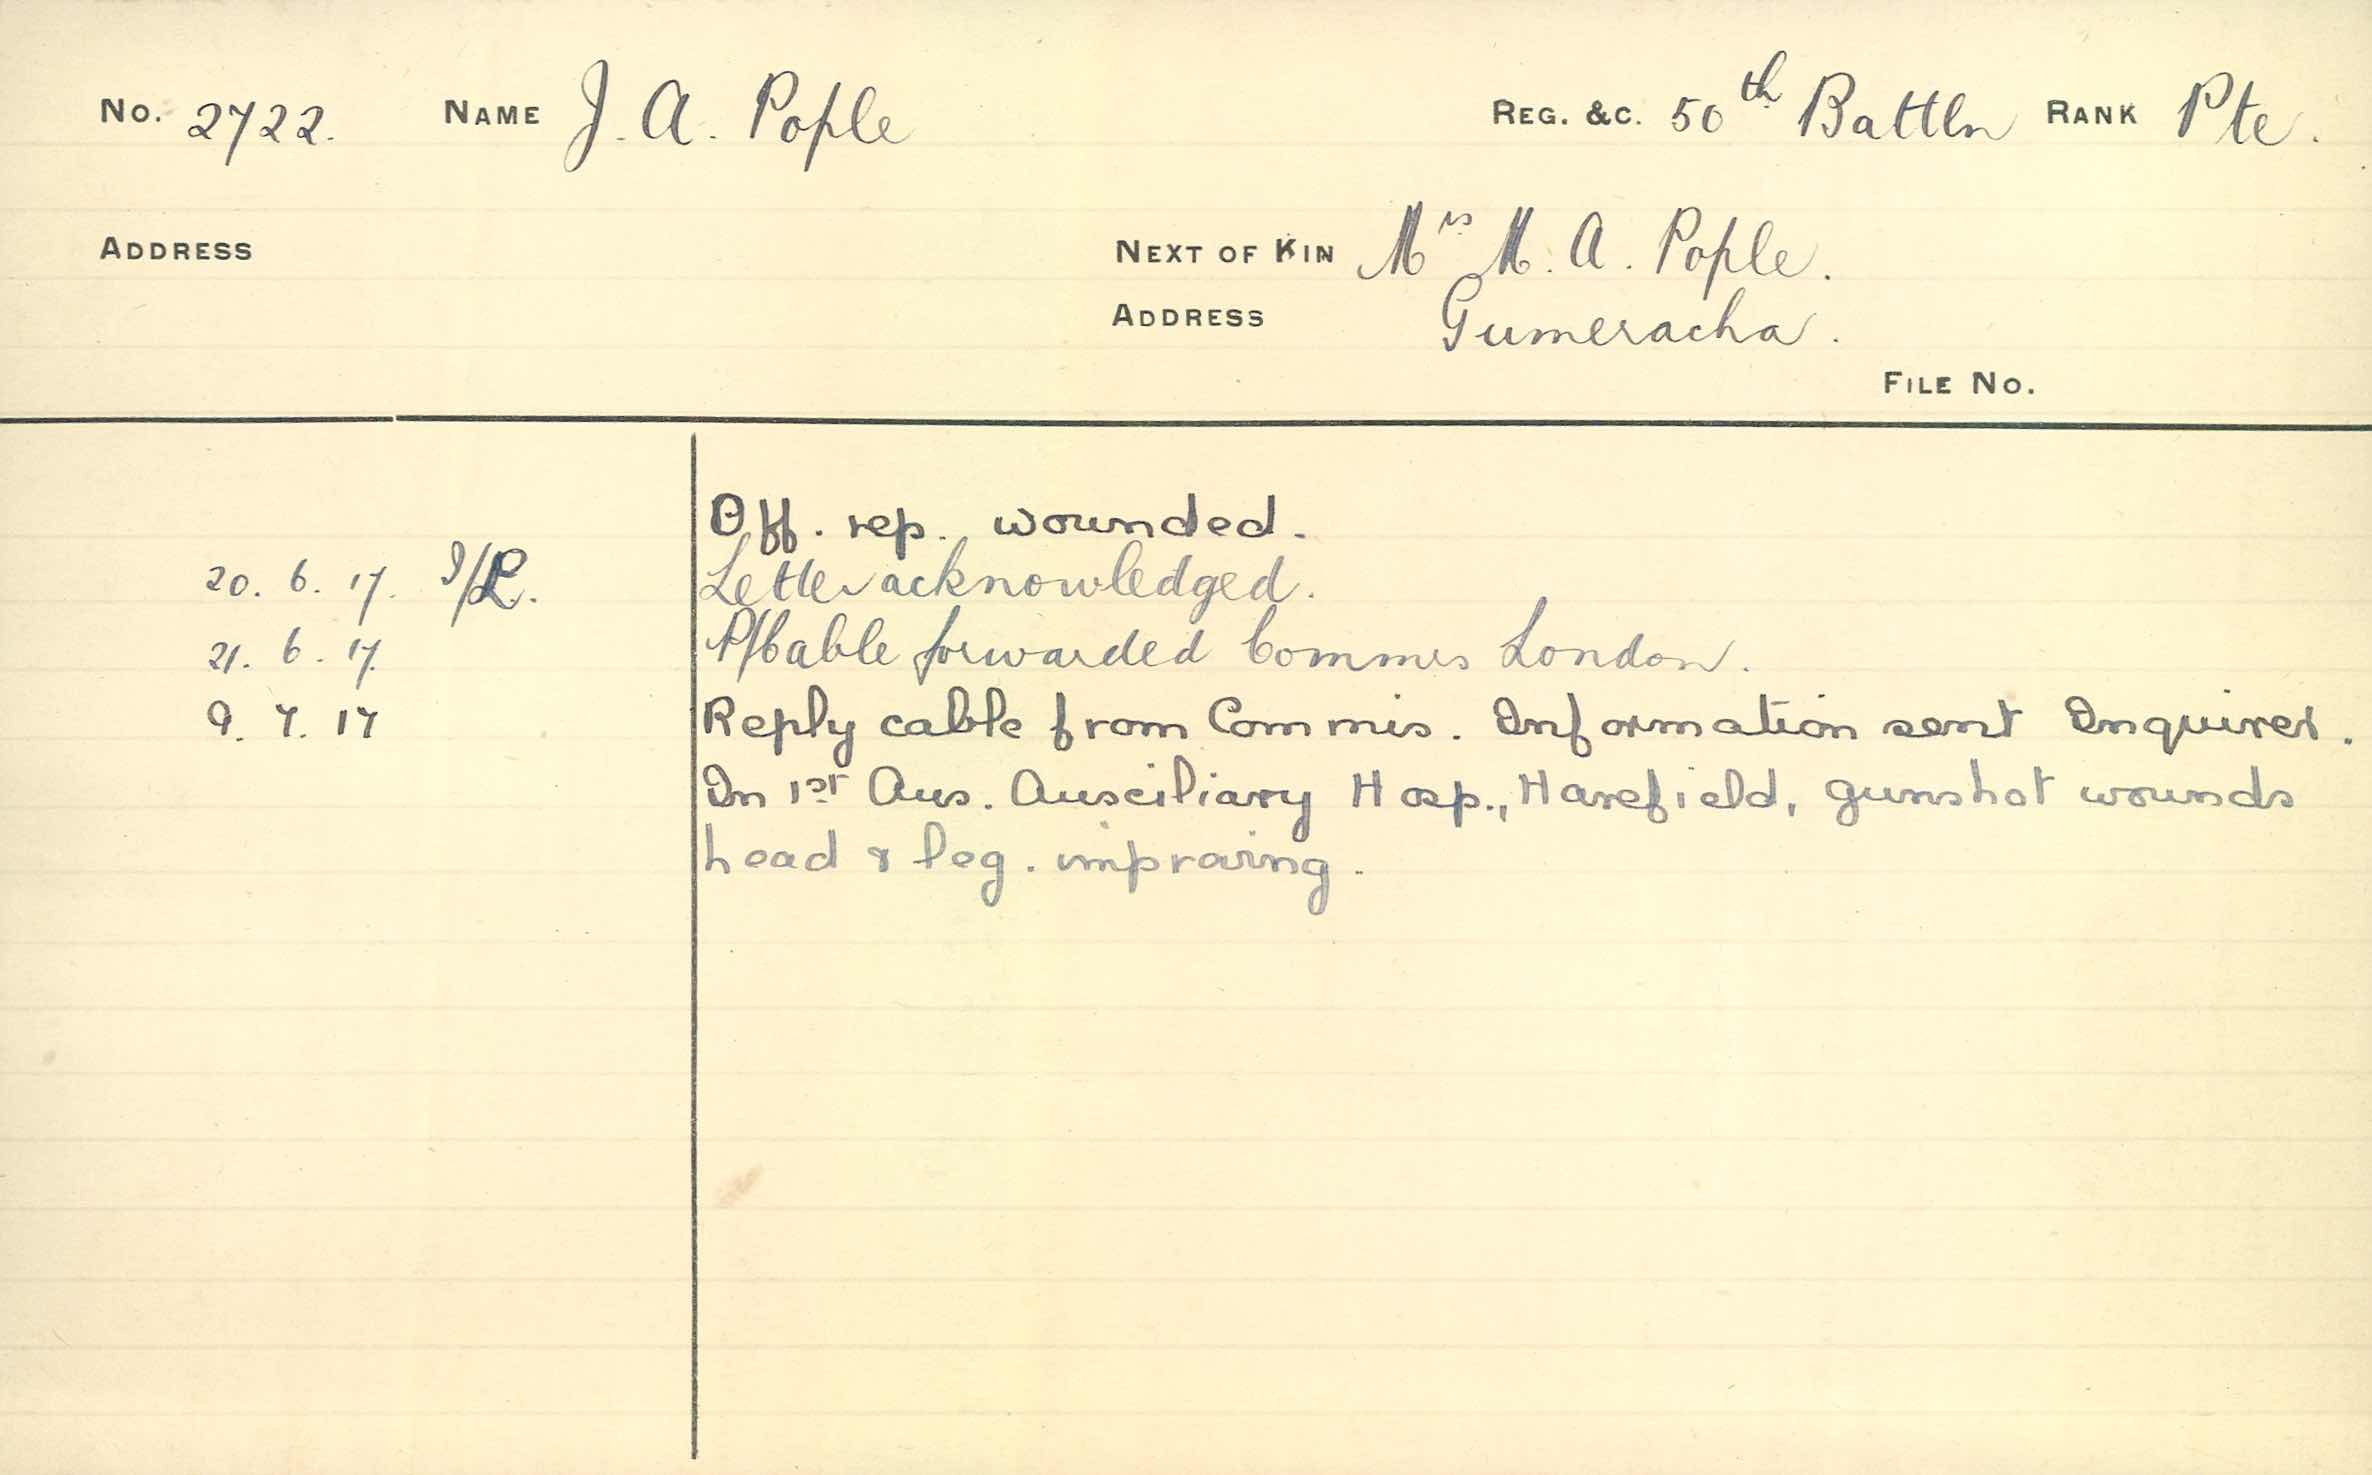 No. 2722. NAME J. A. Pople REG. &C. 50th Battln RANK Pte.
ADDRESS NEXT OF KIN Mrs M. A. Pople.
ADDRESS Gumeracha.
FILE No.
Off. rep. wounded.
20. 6. 17. I/L. Letter acknowledged.
21. 6. 17. P/Cable forwarded Commrs London.
9. 7. 17 Reply cable from Commis. Information sent Inquirer.
In 1st Aus. Auxciliary Hosp., Harefield, gunshot wounds
head & leg. improving.